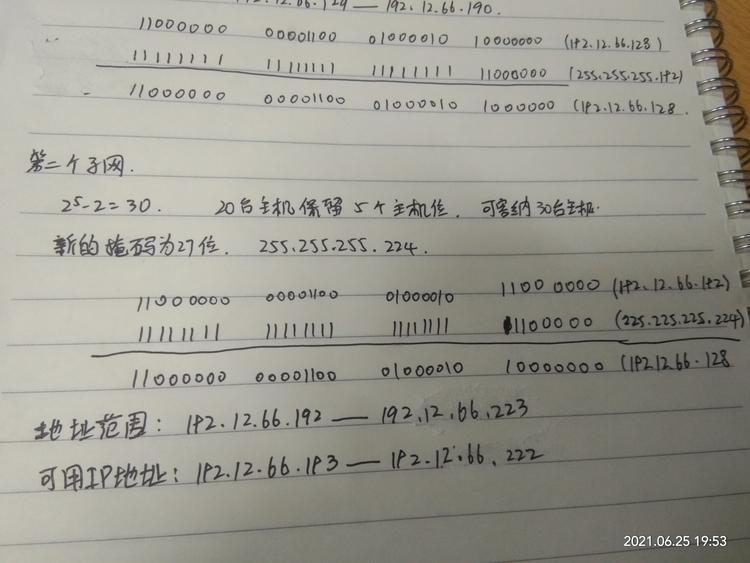 192.12.66.129 — 192.12.66.190.
11000000 00001100 01000010 10000000 (192.12.66.128)
11111111 11111111 11111111 11000000 (255.255.255.192)
11000000 00001100 01000010 1000000 (192.12.66.128.
第二个子网.
2⁵-2=30. 20台主机保留5个主机位. 可容纳30台主机.
新的掩码为27位. 255.255.255.224.
11000000 00001100 01000010 11000000 (192.12.66.192)
11111111 11111111 11111111 1100000 (225.225.225.224)
11000000 00001100 01000010 10000000 (192.12.66.128
地址范围: 192.12.66.192 — 192.12.66.223
可用IP地址: 192.12.66.193 — 192.12.66.222
2021.06.25 19:53